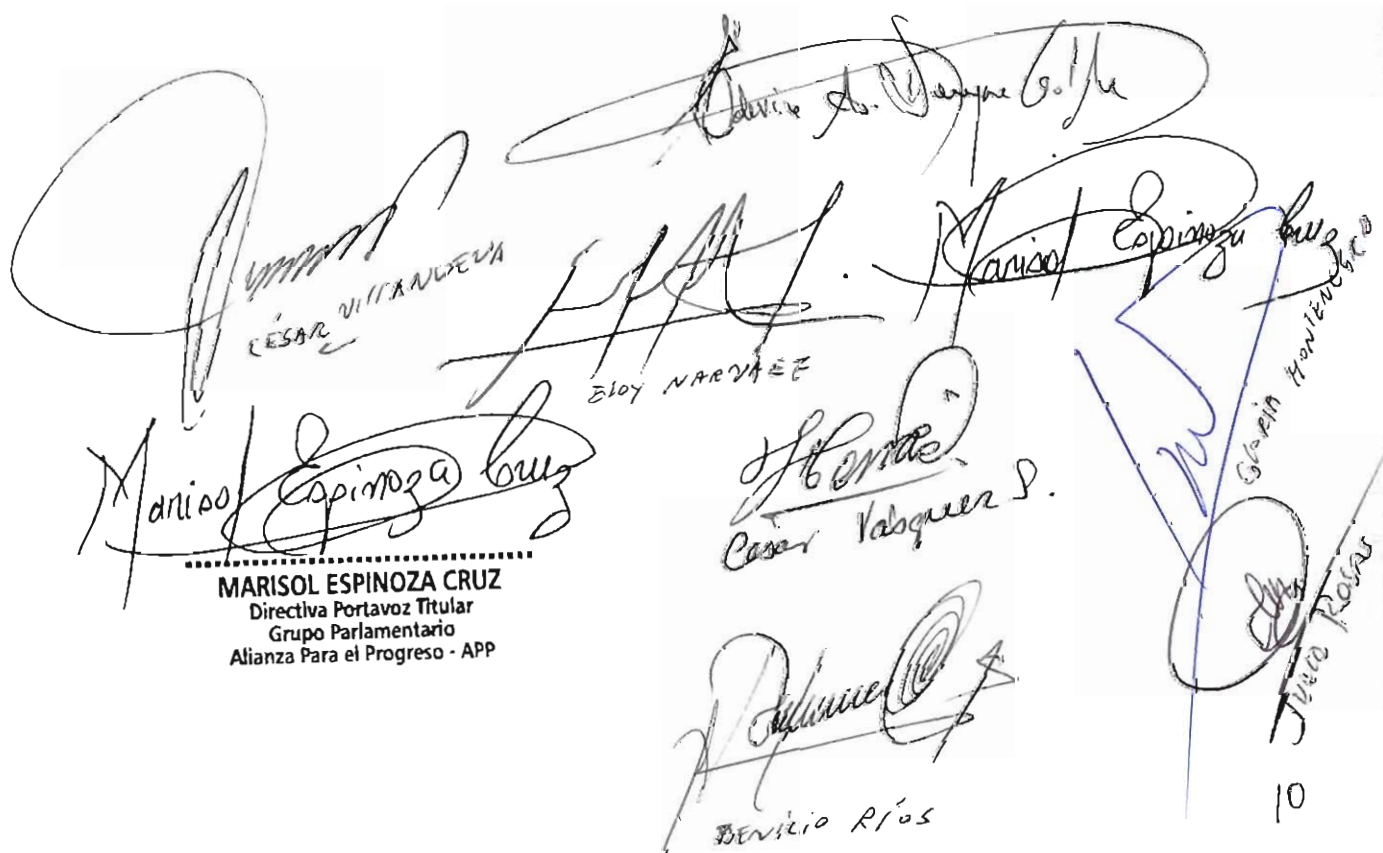 Marisol Espinoza Cruz
CÉSAR VILLANUEVA
ELOY NARVAEZ
GLORIA MONTENEGRO
Marisol Espinoza Cruz
MARISOL ESPINOZA CRUZ
Directiva Portavoz Titular
Grupo Parlamentario
Alianza Para el Progreso - APP
Cesar Vasquez S.
ROSAS
BENICIO RÍOS
10